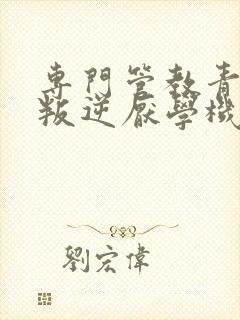 專門管教青
叛逆厭學機
劉宏偉